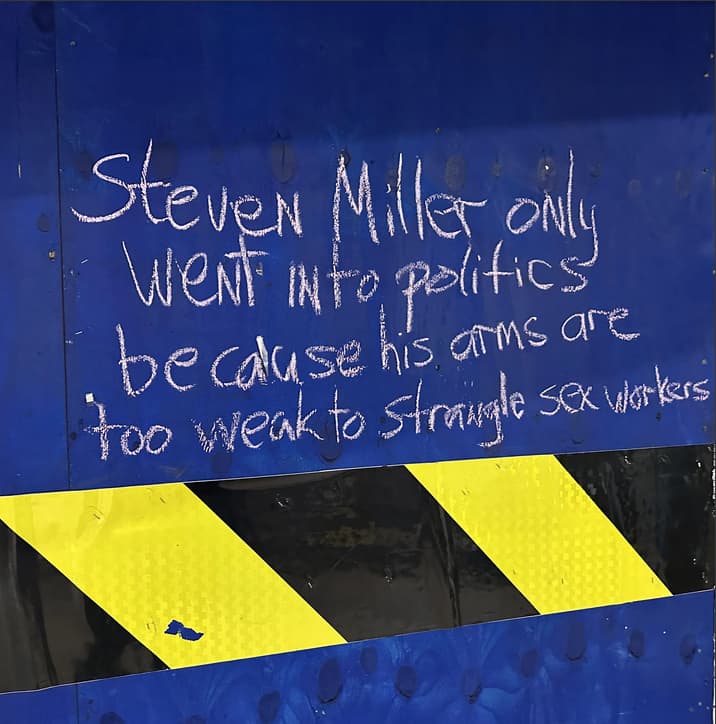 Steven Miller only
went into politics
because his arms are
too weak to strangle sex workers